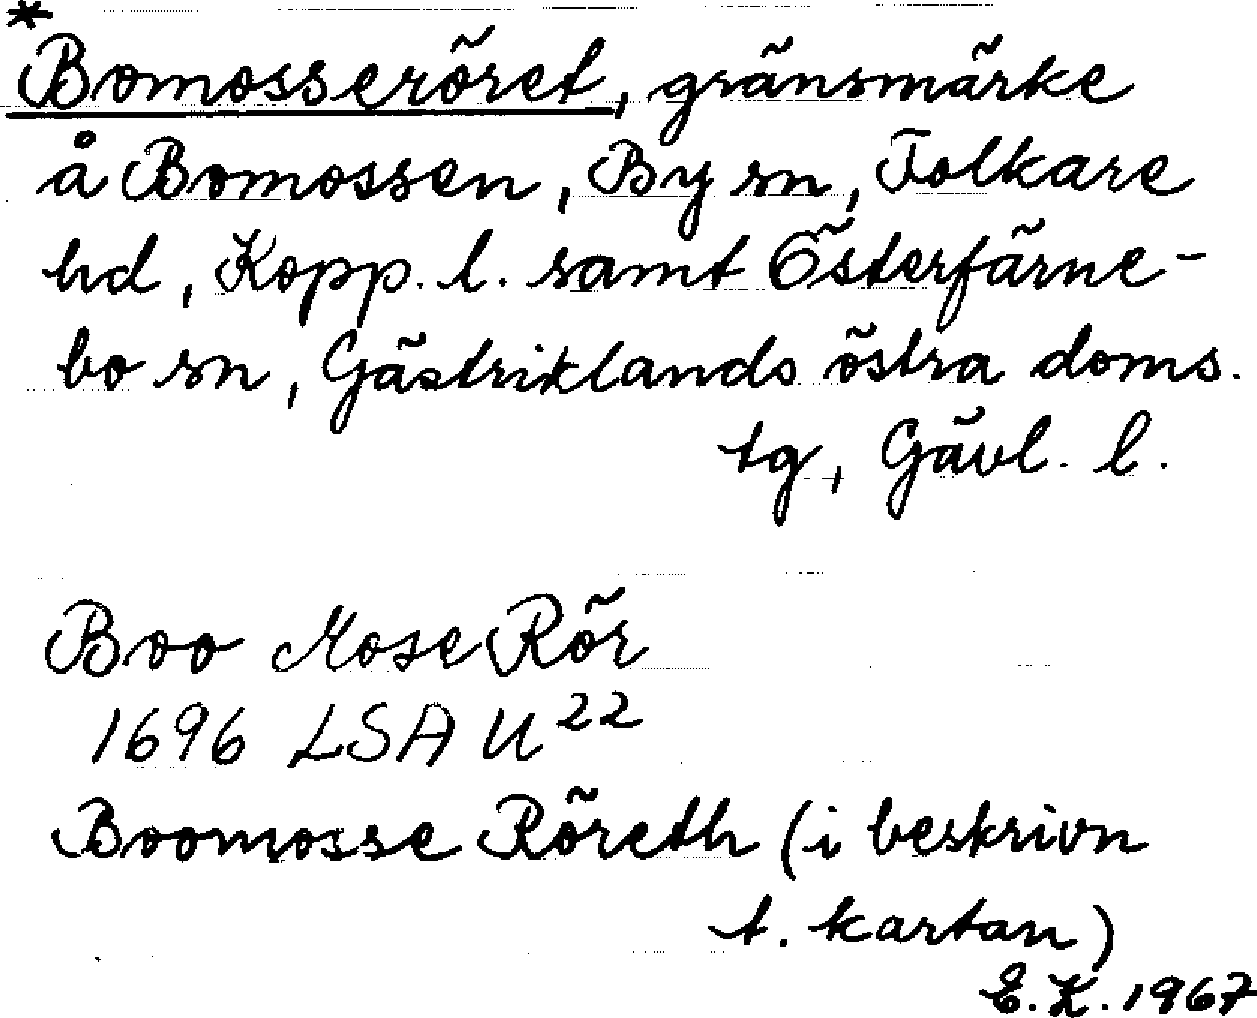 *
Bomosseröret, gränsmärke
å Bomossen, By sn, Folkare
hd, Kopp. l. samt Österfärne-
bo sn, Gästriklands östra doms.
tg, Gävl. l.
Boo Mose Rör
1696 LSA U²²
Boomosse Röreth (i beskrivn
t. kartan)
E.K. 1967